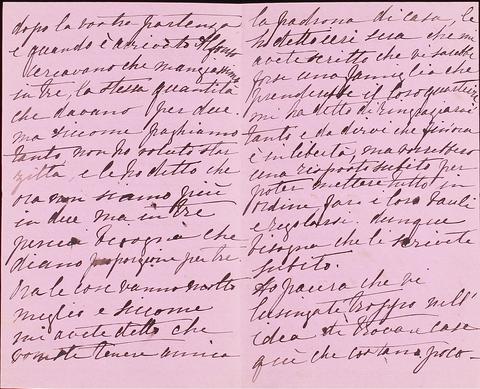 dopo la vostra partenza
e quando è arrivato Alfonso
cercavano che mangiassimo
in tre, la stessa quantità
che davano per due.
ma siccome paghiamo
tanto, non ho voluto star
zitta, e le ho detto che
ora non siamo più
in due ma in tre
perciò bisogna che
diano porzione per tre
Ora le cose vanno molto
meglio e siccome
mi avete detto che
tenere amica
la padrona di casa, le
ho detto ieri sera che mi
avete scritto che vi sarebbe
forse una famiglia che
prenderebbe il loro quartiere
mi ha detto di ringraziarvi
tanto e da dirvi che finora
è in libertà, ma vorrebbero
una risposta subito per
poter mettere tutto in
ordine fare i loro bauli
e regolarsi. dunque
bisogna che le scriviate
subito.
Mi pareva che vi
lusingate troppo nell'
idea di trovare case
quì che costano poco-